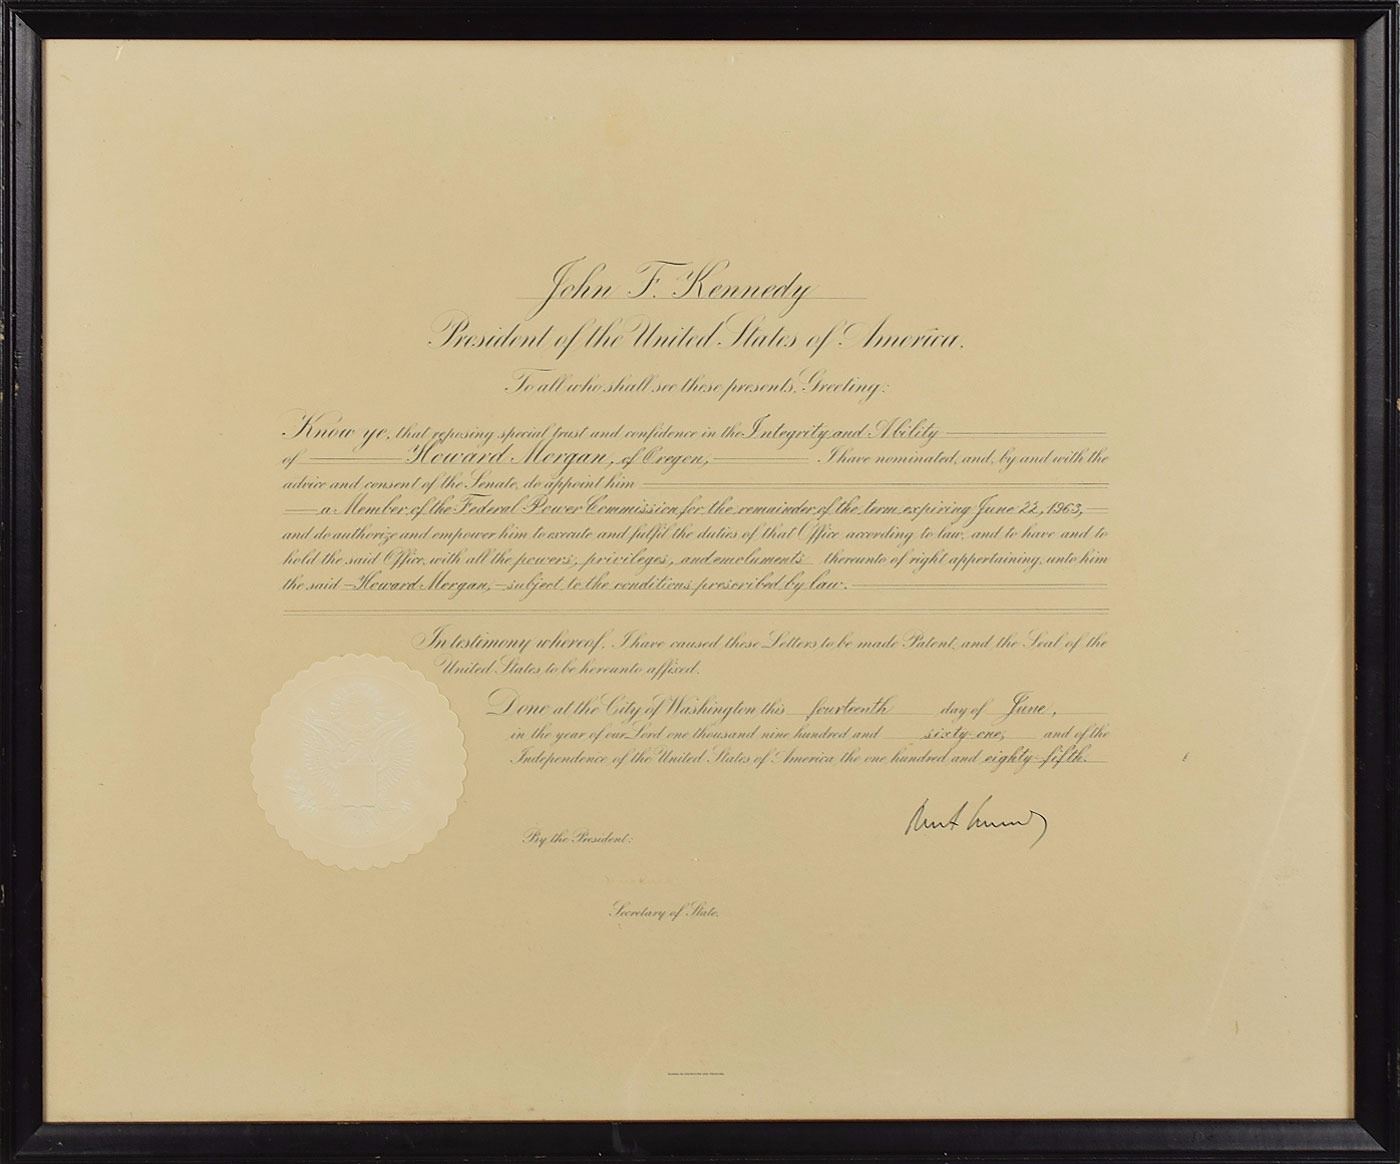 John F. Kennedy
President of the United States of America.
To all who shall see these presents, Greeting:
Know ye, that reposing special trust and confidence in the Integrity and Ability
of Howard Morgan, of Oregon, I have nominated, and, by and with the
advice and consent of the Senate, do appoint him
a Member of the Federal Power Commission for the remainder of the term expiring June 22, 1963,
and do authorize and empower him to execute and fulfil the duties of that Office according to law, and to have and to
hold the said Office, with all the powers, privileges, and emoluments thereunto of right appertaining, unto him
the said Howard Morgan, subject to the conditions prescribed by law.
In testimony whereof, I have caused these Letters to be made Patent, and the Seal of the
United States to be hereunto affixed.
Done at the City of Washington this fourteenth day of June,
in the year of our Lord one thousand nine hundred and sixty-one, and of the
Independence of the United States of America the one hundred and eighty-fifth.
By the President:
Secretary of State.